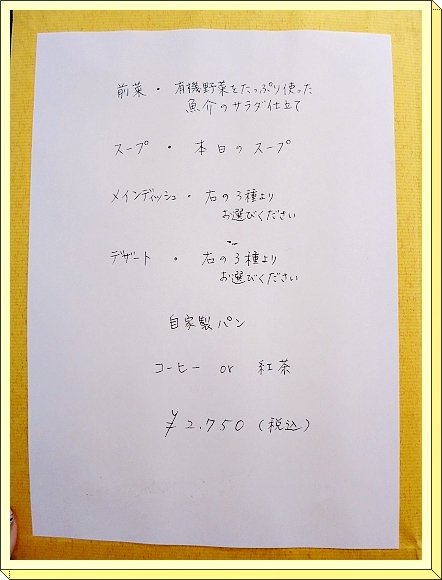 前菜・有機野菜をたっぷり使った
魚介のサラダ仕立て
スープ・本日のスープ
メインディッシュ・右の3種より
お選びください
デザート・右の3種より
お選びください
自家製パン
コーヒー or 紅茶
¥2.750(税込)